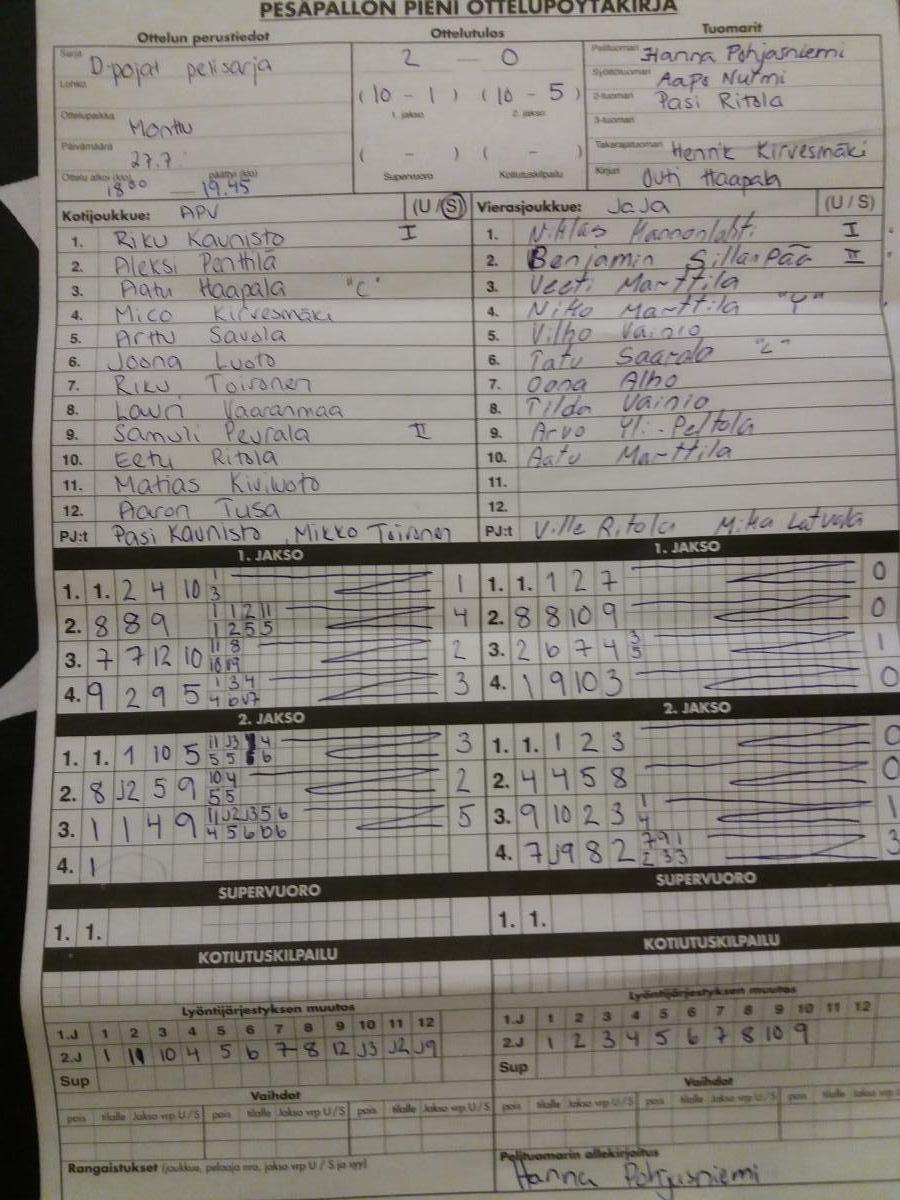 PESÄPALLON PIENI OTTELUPÖYTÄKIRJA
Ottelun perustiedot Ottelutulos Tuomarit
Sarja D-pojat pelisarja
Lohko
Ottelupaikka Monttu
Päivämäärä 27.7.
Ottelu alkoi (klo) 18 00 päättyi (klo) 19.45
2 - 0
(10 - 1) (10 - 5)
1. jakso 2. jakso
( - ) ( - )
Supervuoro Kotiutuskilpailu
Pelituomari Hanna Pohjasniemi
Syöttötuomari Aapo Nurmi
2-tuomari Pasi Ritola
3-tuomari
Takarajatuomari Henrik Kirvesmäki
Kirjuri Outi Haapala
Kotijoukkue: APV (U/S) Vierasjoukkue: JaJa (U/S)
1. Riku Kaunisto I
2. Aleksi Penthlä
3. Aatu Haapala "C"
4. Mico Kirvesmäki
5. Arttu Savola
6. Joona Luoto
7. Riku Toironen
8. Lauri Vaaranmaa
9. Samuli Peurala II
10. Eetu Ritola
11. Matias Kiviluoto
12. Aaron Tusa
PJ:t Pasi Kaunisto, Mikko Toironen
1. Niklas Mannonlahti I
2. Benjamin Sillanpää II
3. Veeti Marttila
4. Niko Marttila
5. Vilho Vainio
6. Tatu Saarela
7. Oona Alho
8. Tilda Vainio
9. Arvo Yli-Peltola
10. Aatu Marttila
11.
12.
PJ:t Ville Ritola Mika Latvala
1. JAKSO
1. 1. 2 4 10 1
2. 8 8 9 4
3. 7 7 12 10 2
4. 9 2 9 5 3
1. JAKSO
1. 1. 1 2 7 0
2. 8 8 10 9 0
3. 2 6 7 4 1
4. 1 9 10 3 0
2. JAKSO
1. 1. 1 10 5 3
2. 8 J2 5 9 2
3. 1 1 4 9 5
4. 1
2. JAKSO
1. 1. 1 2 3 0
2. 4 4 5 8 0
3. 9 10 2 3 1
4. 7 J9 8 2 3
SUPERVUORO SUPERVUORO
1. 1. 1. 1.
KOTIUTUSKILPAILU KOTIUTUSKILPAILU
Lyöntijärjestyksen muutos
1.J 1 2 3 4 5 6 7 8 9 10 11 12
2.J 1 11 10 4 5 6 7 8 12 J3 J2 J9
Sup
Lyöntijärjestyksen muutos
1.J 1 2 3 4 5 6 7 8 9 10 11 12
2.J 1 2 3 4 5 6 7 8 10 9
Sup
Vaihdot Vaihdot
pois tilalle Jakso vrp U/S pois tilalle Jakso vrp U/S pois tilalle Jakso vrp U/S
pois tilalle Jakso vrp U/S pois tilalle Jakso vrp U/S pois tilalle Jakso vrp
Rangaistukset (joukkue, pelaaja nro, jakso vrp U/S ja syy)
Pelituomarin allekirjoitus
Hanna Pohjasniemi